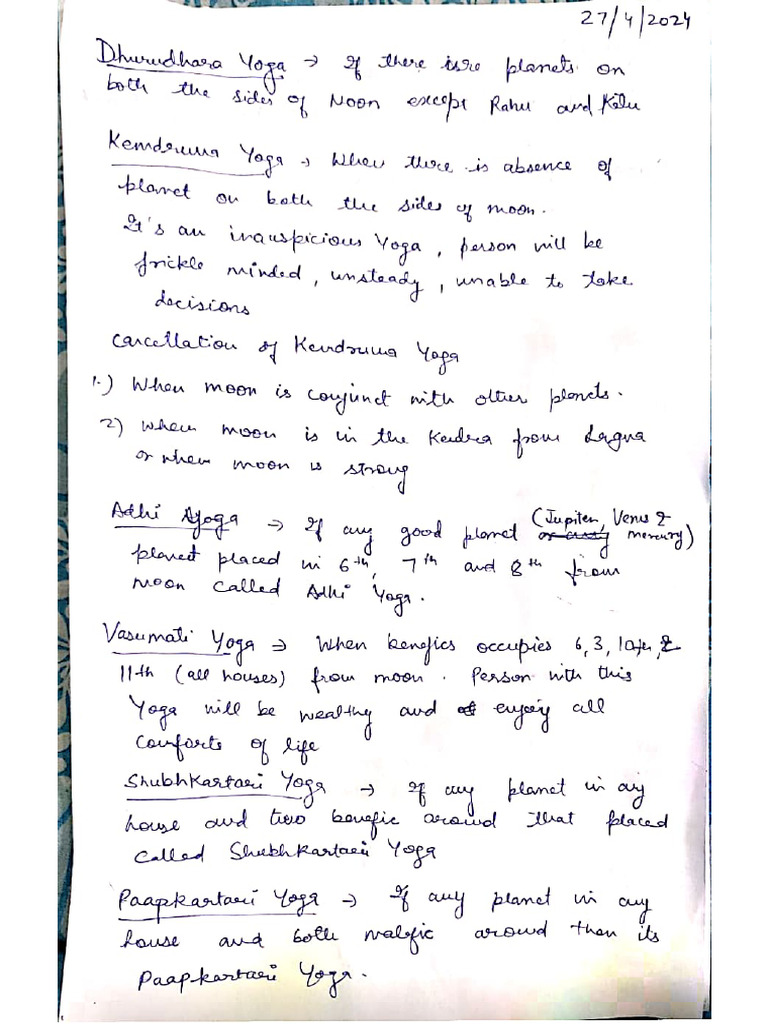 27/4/2024
Dhurudhara Yoga → If there is planets on
both the sides of Moon except Rahu and Ketu
Kemdruma Yoga → When there is absence of
planet on both the sides of moon.
It's an inauspicious Yoga, person will be
frickle minded, unsteady, unable to take
decisions
Cancellation of Kemdruma Yoga
1.) When moon is conjunct with other planets.
2) When moon is in the Kendra from Lagna
or when moon is strong
Adhi Yoga → If any good planet (Jupiter, Venus & mercury)
planet placed in 6th, 7th and 8th from
Moon called Adhi Yoga.
Vasumati Yoga → When benefics occupies 6, 3, 10th, &
11th (all houses) from moon. Person with this
Yoga will be wealthy and enjoy all
comforts of life
Shubhkartari Yoga → If any planet in any
house and two benefic around that placed
called Shubhkartari Yoga
Paapkartari Yoga → If any planet in any
house and both malefic around then its
Paapkartari Yoga.